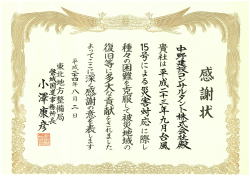 感謝状
中野建設コンサルタント株式会社殿
貴社は平成二十三年九月台風
15号による災害対応に際し
種々の困難を克服して被災地域の
復旧等に多大な貢献をされました
よってここに深く感謝の意を表します
平成二十四年八月二日
東北地方整備局
磐城国道事務所長
小澤康彦